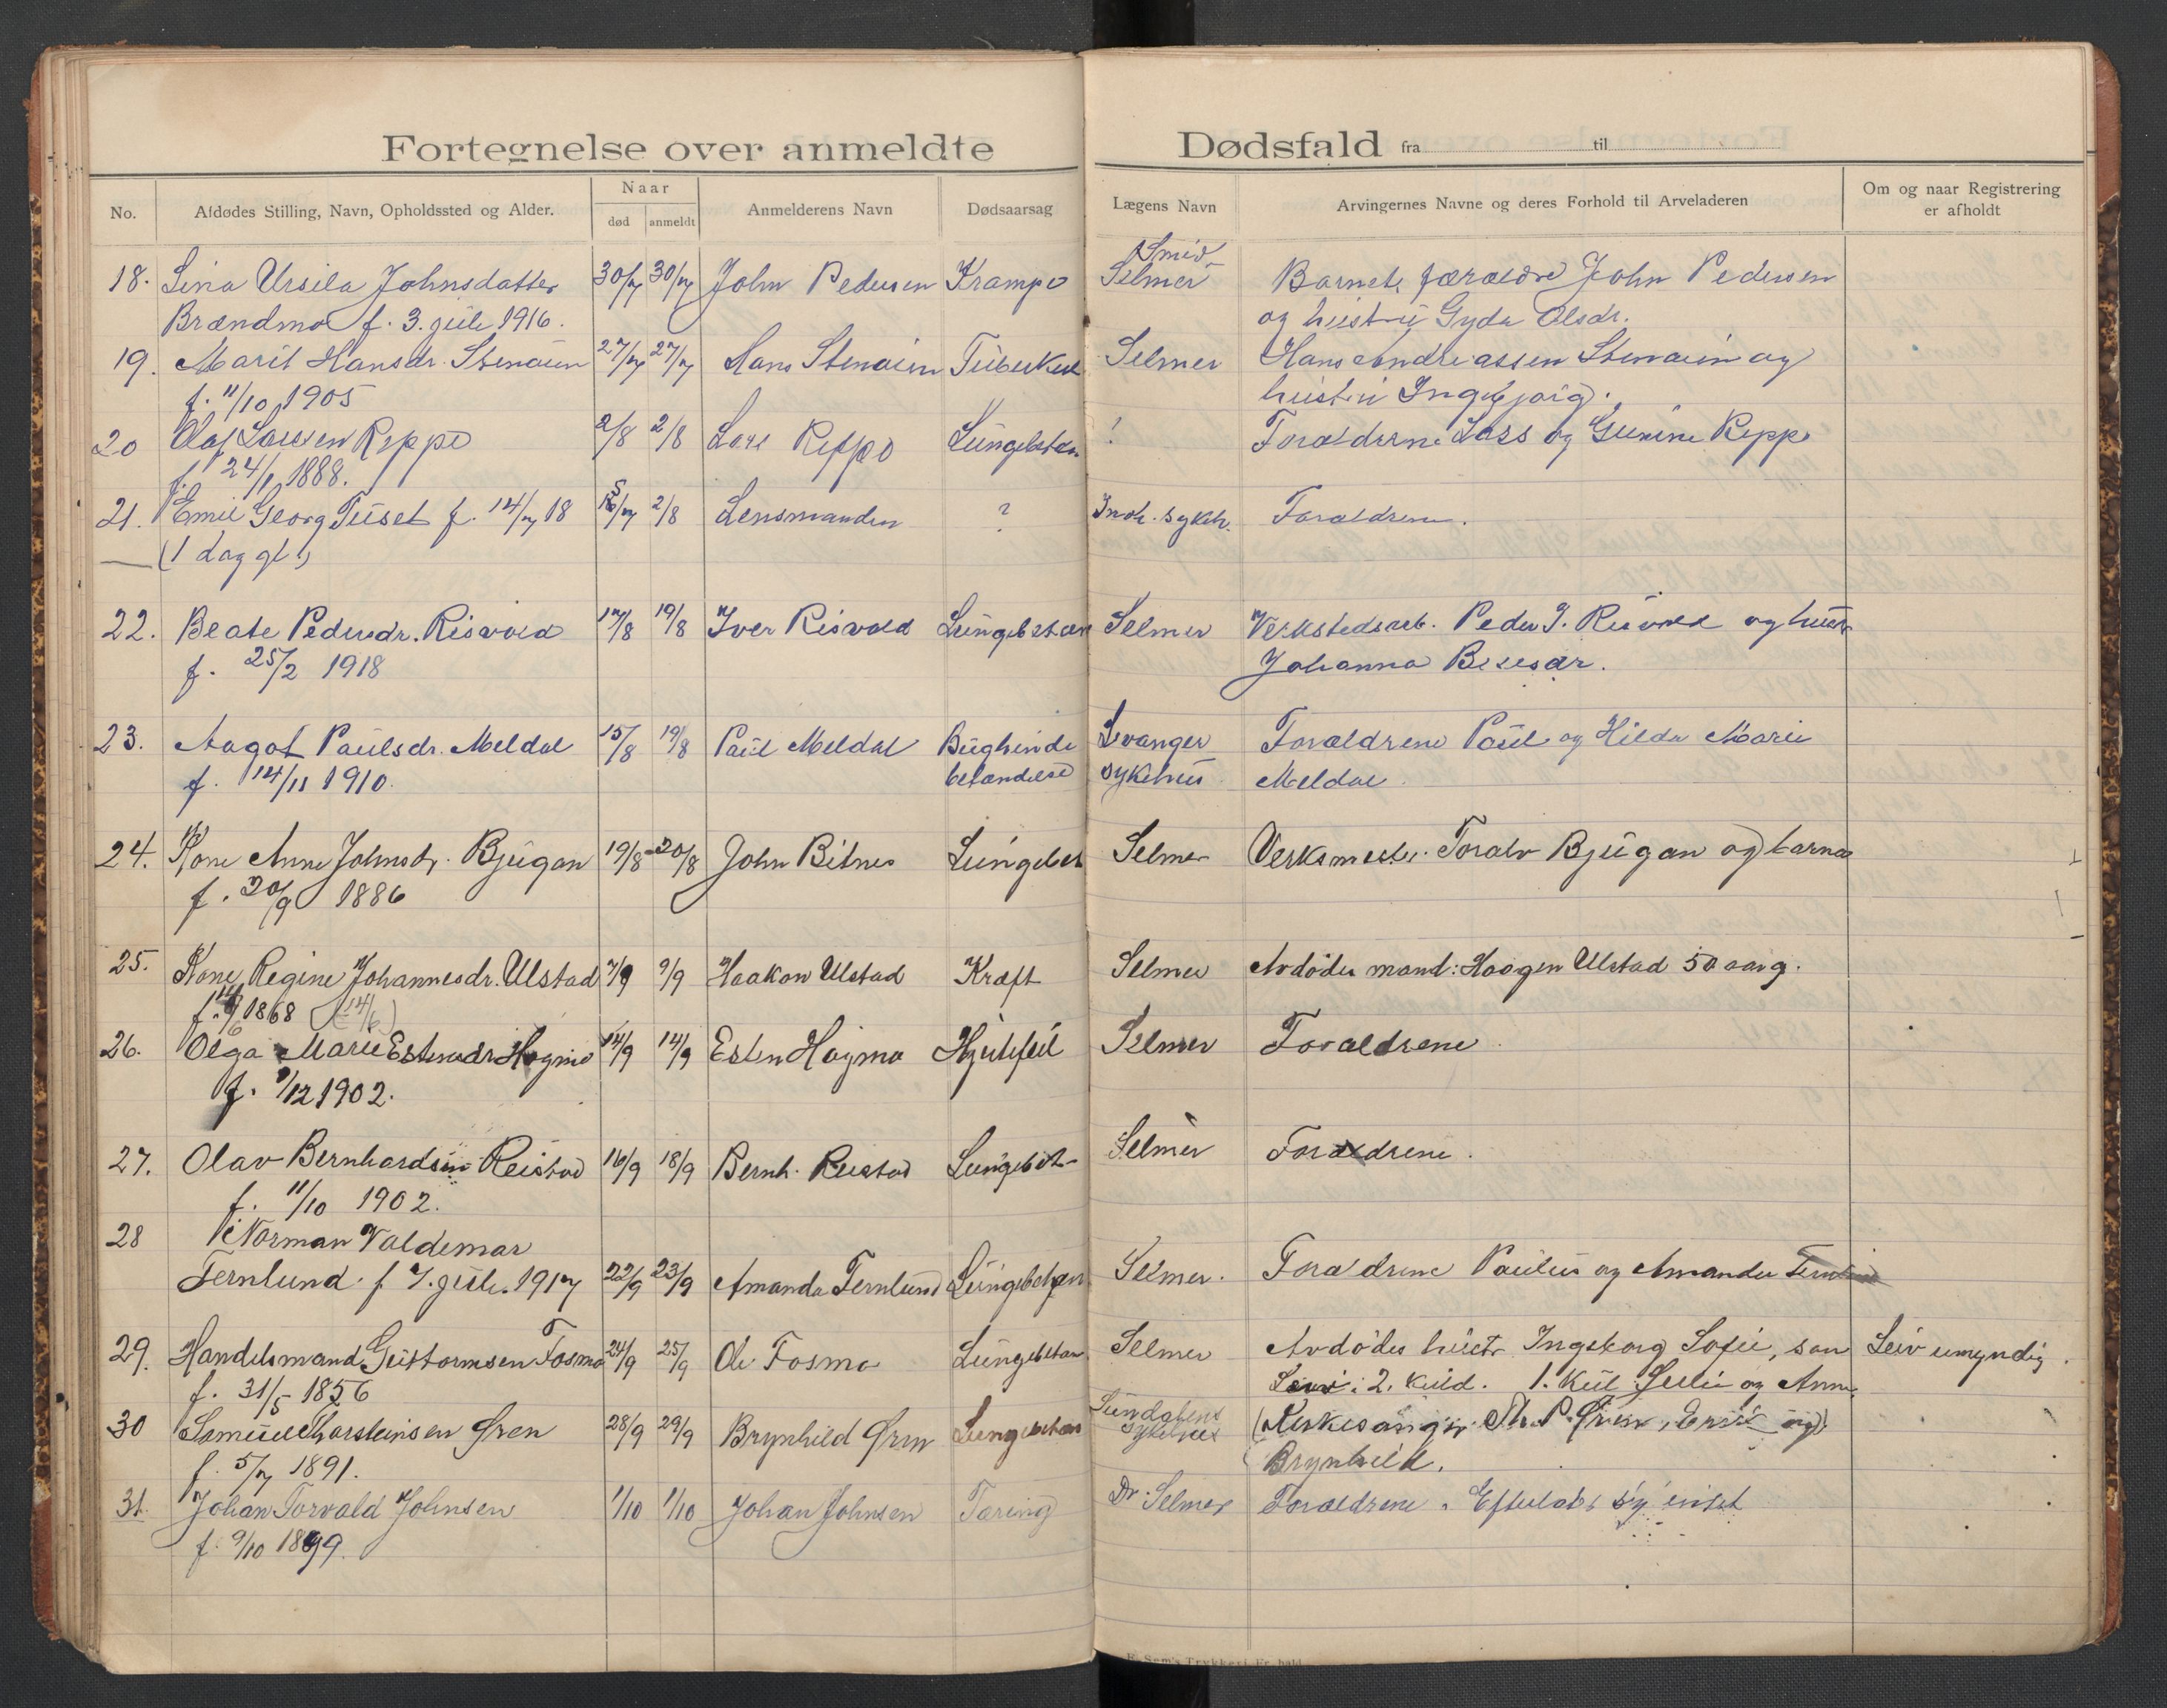 Fortegnelse over anmeldte Dødsfald fra til
No. Afdødes Stilling, Navn, Opholdssted og Alder. Naar død anmeldt Anmelderens Navn Dødsaarsag Lægens Navn Arvingernes Navne og deres Forhold til Arveladeren Om og naar Registrering er afholdt
Smid
18. Lina Ursila Johnsdatter 30/7 30/7 John Pedersen Krampe Selmer Barnets foræeldre John Pedersen
Brændmo f. 3. juli 1916. og hustru Gyda Olsdr.
19. Marit Hansdr. Stenaien 27/7 27/7 Hans Stenaien Tuberkul Selmer Hans Andreassen Stenaien og
f. 11/10 1905 hustru Ingebjørg.
20 Olaf Larsen Reppe 2/8 2/8 Lars Reppe Lungebetæn ! Forældrene Lars og Gunine Reppe
f. 24/1 1888.
21. Emil Georg Tuset f. 14/7 18 15/7 2/8 Lensmanden ? Indh. sykeh. Forældrene.
(1 dag gl.)
22. Beate Pedersdr. Risvold 17/8 19/8 Iver Risvold Lungebetæn Selmer Verkstedsarb. Peder J. Risvold og hustr
f. 25/2 1918 Johanna
23. Aagot Paulsdr. Meldal 15/8 19/8 Paul Meldal Bughinde Levanger Forældrene Paul og Hilda Marie
f. 14/11 1910. betændelse sykehus Meldal.
24. Kone Anne Johnsdr. Bjugan 19/8 20/8 John Bitnes Lungebet Selmer Verksmester Toralv Bjugan og barna
f. 20/9 1886
25. Kone Regine Johannesdr. Ulstad 7/9 9/9 Haakon Ulstad Kræft Selmer Avdødes mand: Haagen Ulstad 50 aarig.
f. 14/6 1868 (14/6)
26. Olga Marie Estensdr. Høgmo 14/9 14/9 Esten Høgmo Hjertefeil Selmer Forældrene.
f. 9/12 1902.
27. Olav Bernhardsen Reistad 16/9 18/9 Bernh. Reistad Lungebet Selmer Forældrene.
f. 11/10 1902.
28 Norman Valdemar
Ternlund f. 7. juli. 1917 22/9 23/9 Amanda Ternlund Lungebetæn Selmer. Forældrene Paulus og Amanda Ternlund
29. Handelsmand Guttormsen Fosmo 24/9 25/9 Ole Fosmo Lungebetæn Selmer Avdødes hustr. Ingeborg Sofie, søn Leiv umyndig.
f. 31/5 1856 Leiv i 2. kuld. 1. kul Julie og Anne
30 Samuel Thorsteinsen Øren 28/9 29/9 Brynhild Øren Lungebetæn Sundalens sykehus (Kirkesanger Th. P. Øren, og)
f. 5/7 1891. Brynhild.
31. Johan Torvald Johnsen 1/10 1/10 Johan Johnsen Tæring Dr. Selmer Forældrene. Efterlater sig intet
f. 9/10 1899.
E. Sem's Trykkeri Fr.hald